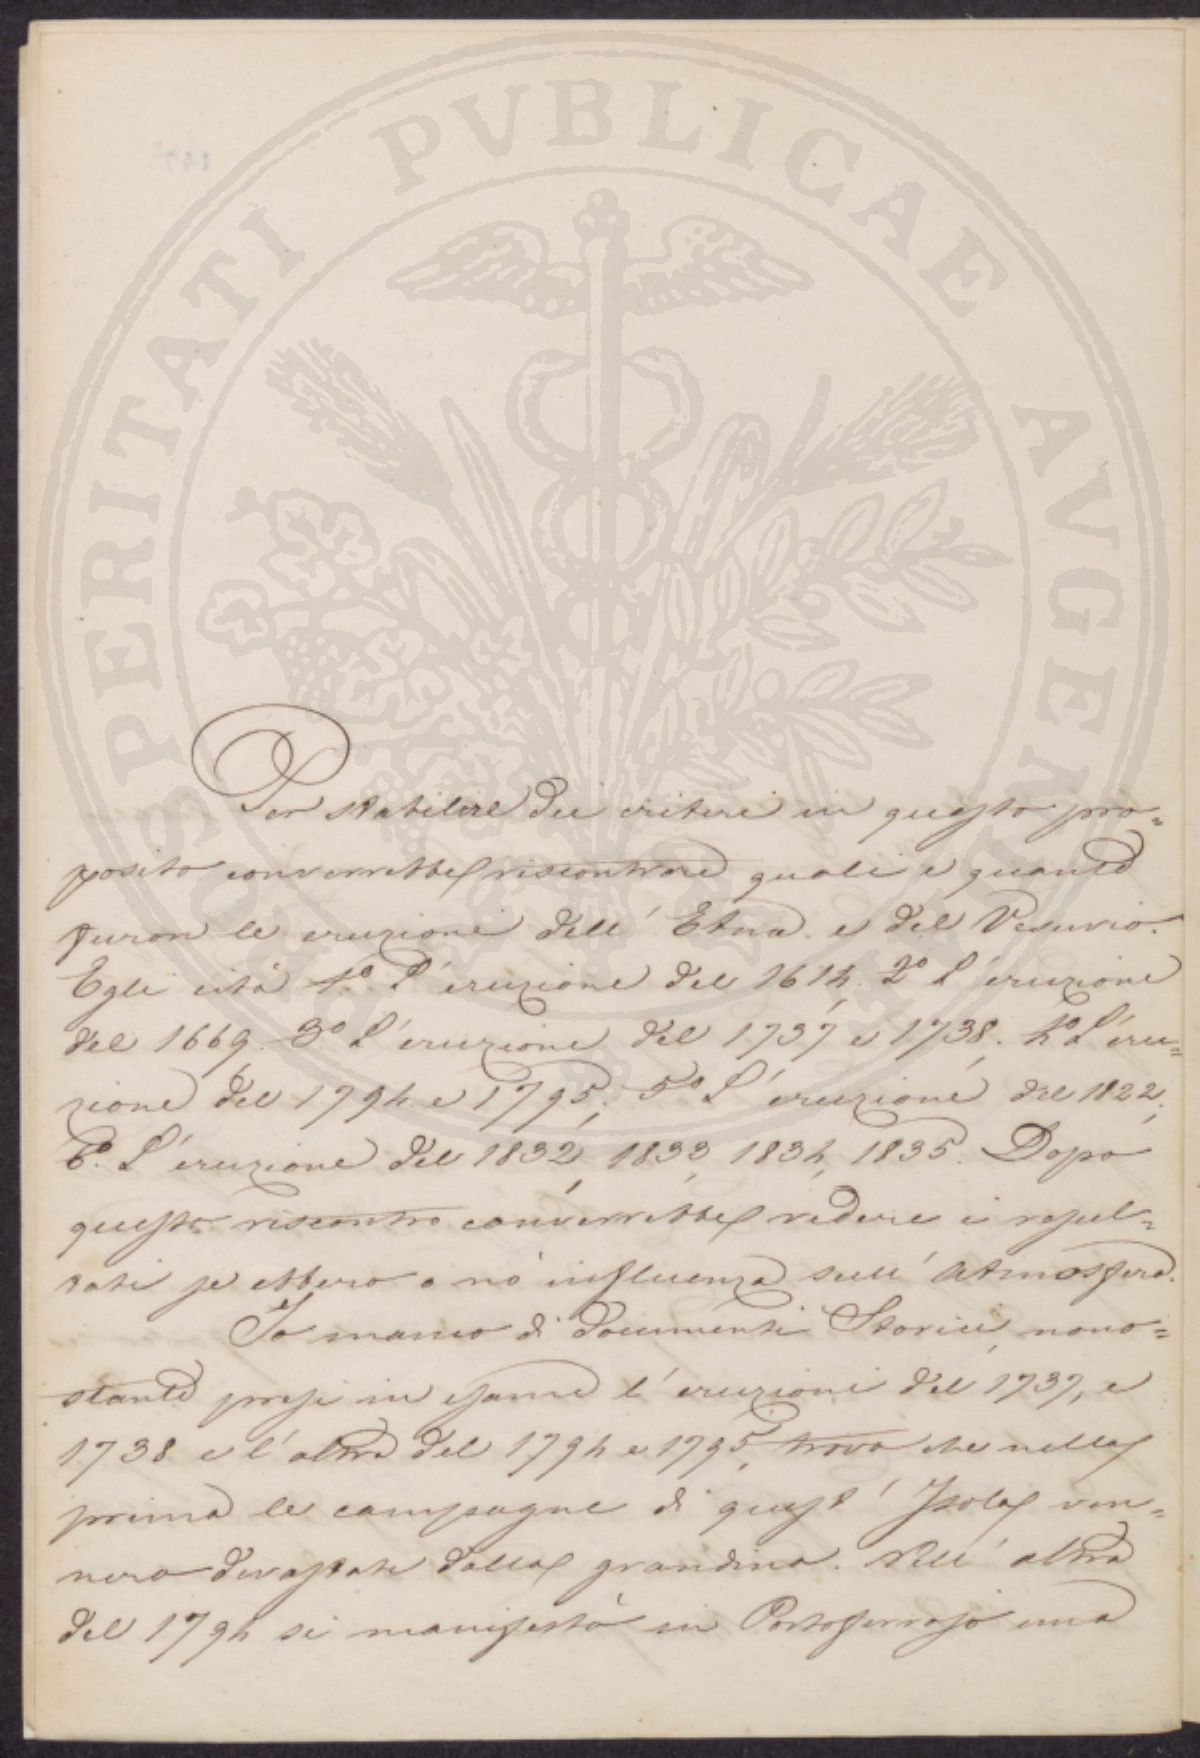 PROSPERITATI PVBLICAE AVGENDAE
Per stabilire dei criteri in questo pro=
posito converrebbe riscontrare quali e quante
furon le eruzioni dell' Etna e del Vesuvio.
Egli cita 1º. L' eruzione del 1614. 2º L' eruzione
del 1669. 3º L' eruzione del 1737, e 1738. 4º L' eru=
zione del 1794. e 1795; 5º L' eruzione del 1822;
6º. L' eruzione del 1832, 1833, 1834, 1835. Dopo
questo riscontro converrebbe vedere i resul=
tati se ebbero o nò influenza sull' Atmosfera.
Io manco di documenti Storici, nono=
stante presi in esame l' eruzioni del 1737, e
1738 e l' altra del 1794 e 1795, trovo che nella
prima le campagne di quest' Isola ven=
nero devastate dalla grandine. Nell' altra
del 1794 si manifestò in Portoferrajo una